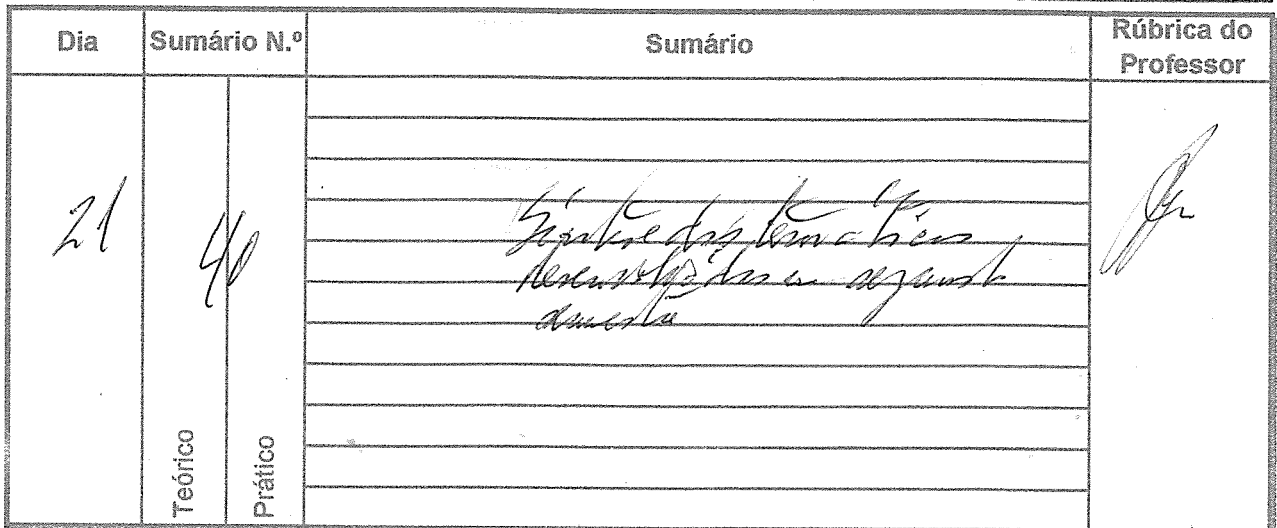 Dia Sumário N.º Sumário Rúbrica do Professor
21
40
Síntese das temáticas
desenvolvidas em
Teórico
Prático